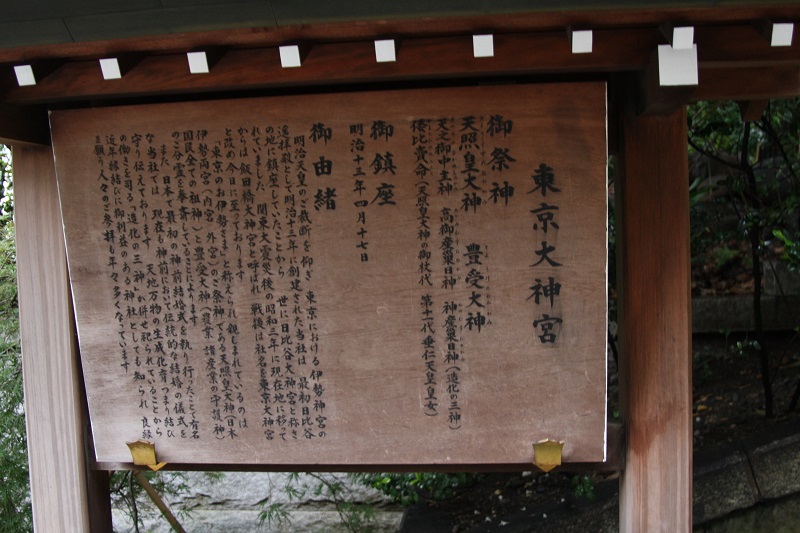 東京大神宮
御祭神
天照皇大神　豊受大神
天之御中主神　高御産巣日神　神産巣日神（造化の三神）
倭比賣命（天照皇大神の御杖代　第十一代　垂仁天皇皇女）
御鎮座
明治十三年四月十七日
御由緒
明治天皇のご裁断を仰ぎ　東京における伊勢神宮の
遥拝殿として明治十三年に創建された当社は　最初日比谷
の地に鎮座していたことから　世に日比谷大神宮と称さ
れていました　関東大震災後の昭和三年に現在地に移って
からは飯田橋大神宮と呼ばれ　戦後は社名を東京大神宮
と改め今日に至っております
「東京のお伊勢さま」と称えられ親しまれているのは
伊勢両宮（内宮　外宮）のご祭神である天照皇大神（日本
国民全ての祖神）と豊受大神（農業　諸産業の守護神）
のご分霊を奉斎していることによります
また　日本で最初の神前結婚式を執り行ったことで有名
な当社では　現在も神前において伝統的な結婚の儀式を
守り伝えております　天地万物の生成化育つまり結び
の働きを司る「造化の三神」が併せ祀られていることから
近年縁結びに御利益のある神社としても知られ　良縁
を願う人々のご参拝も年々多くなっています